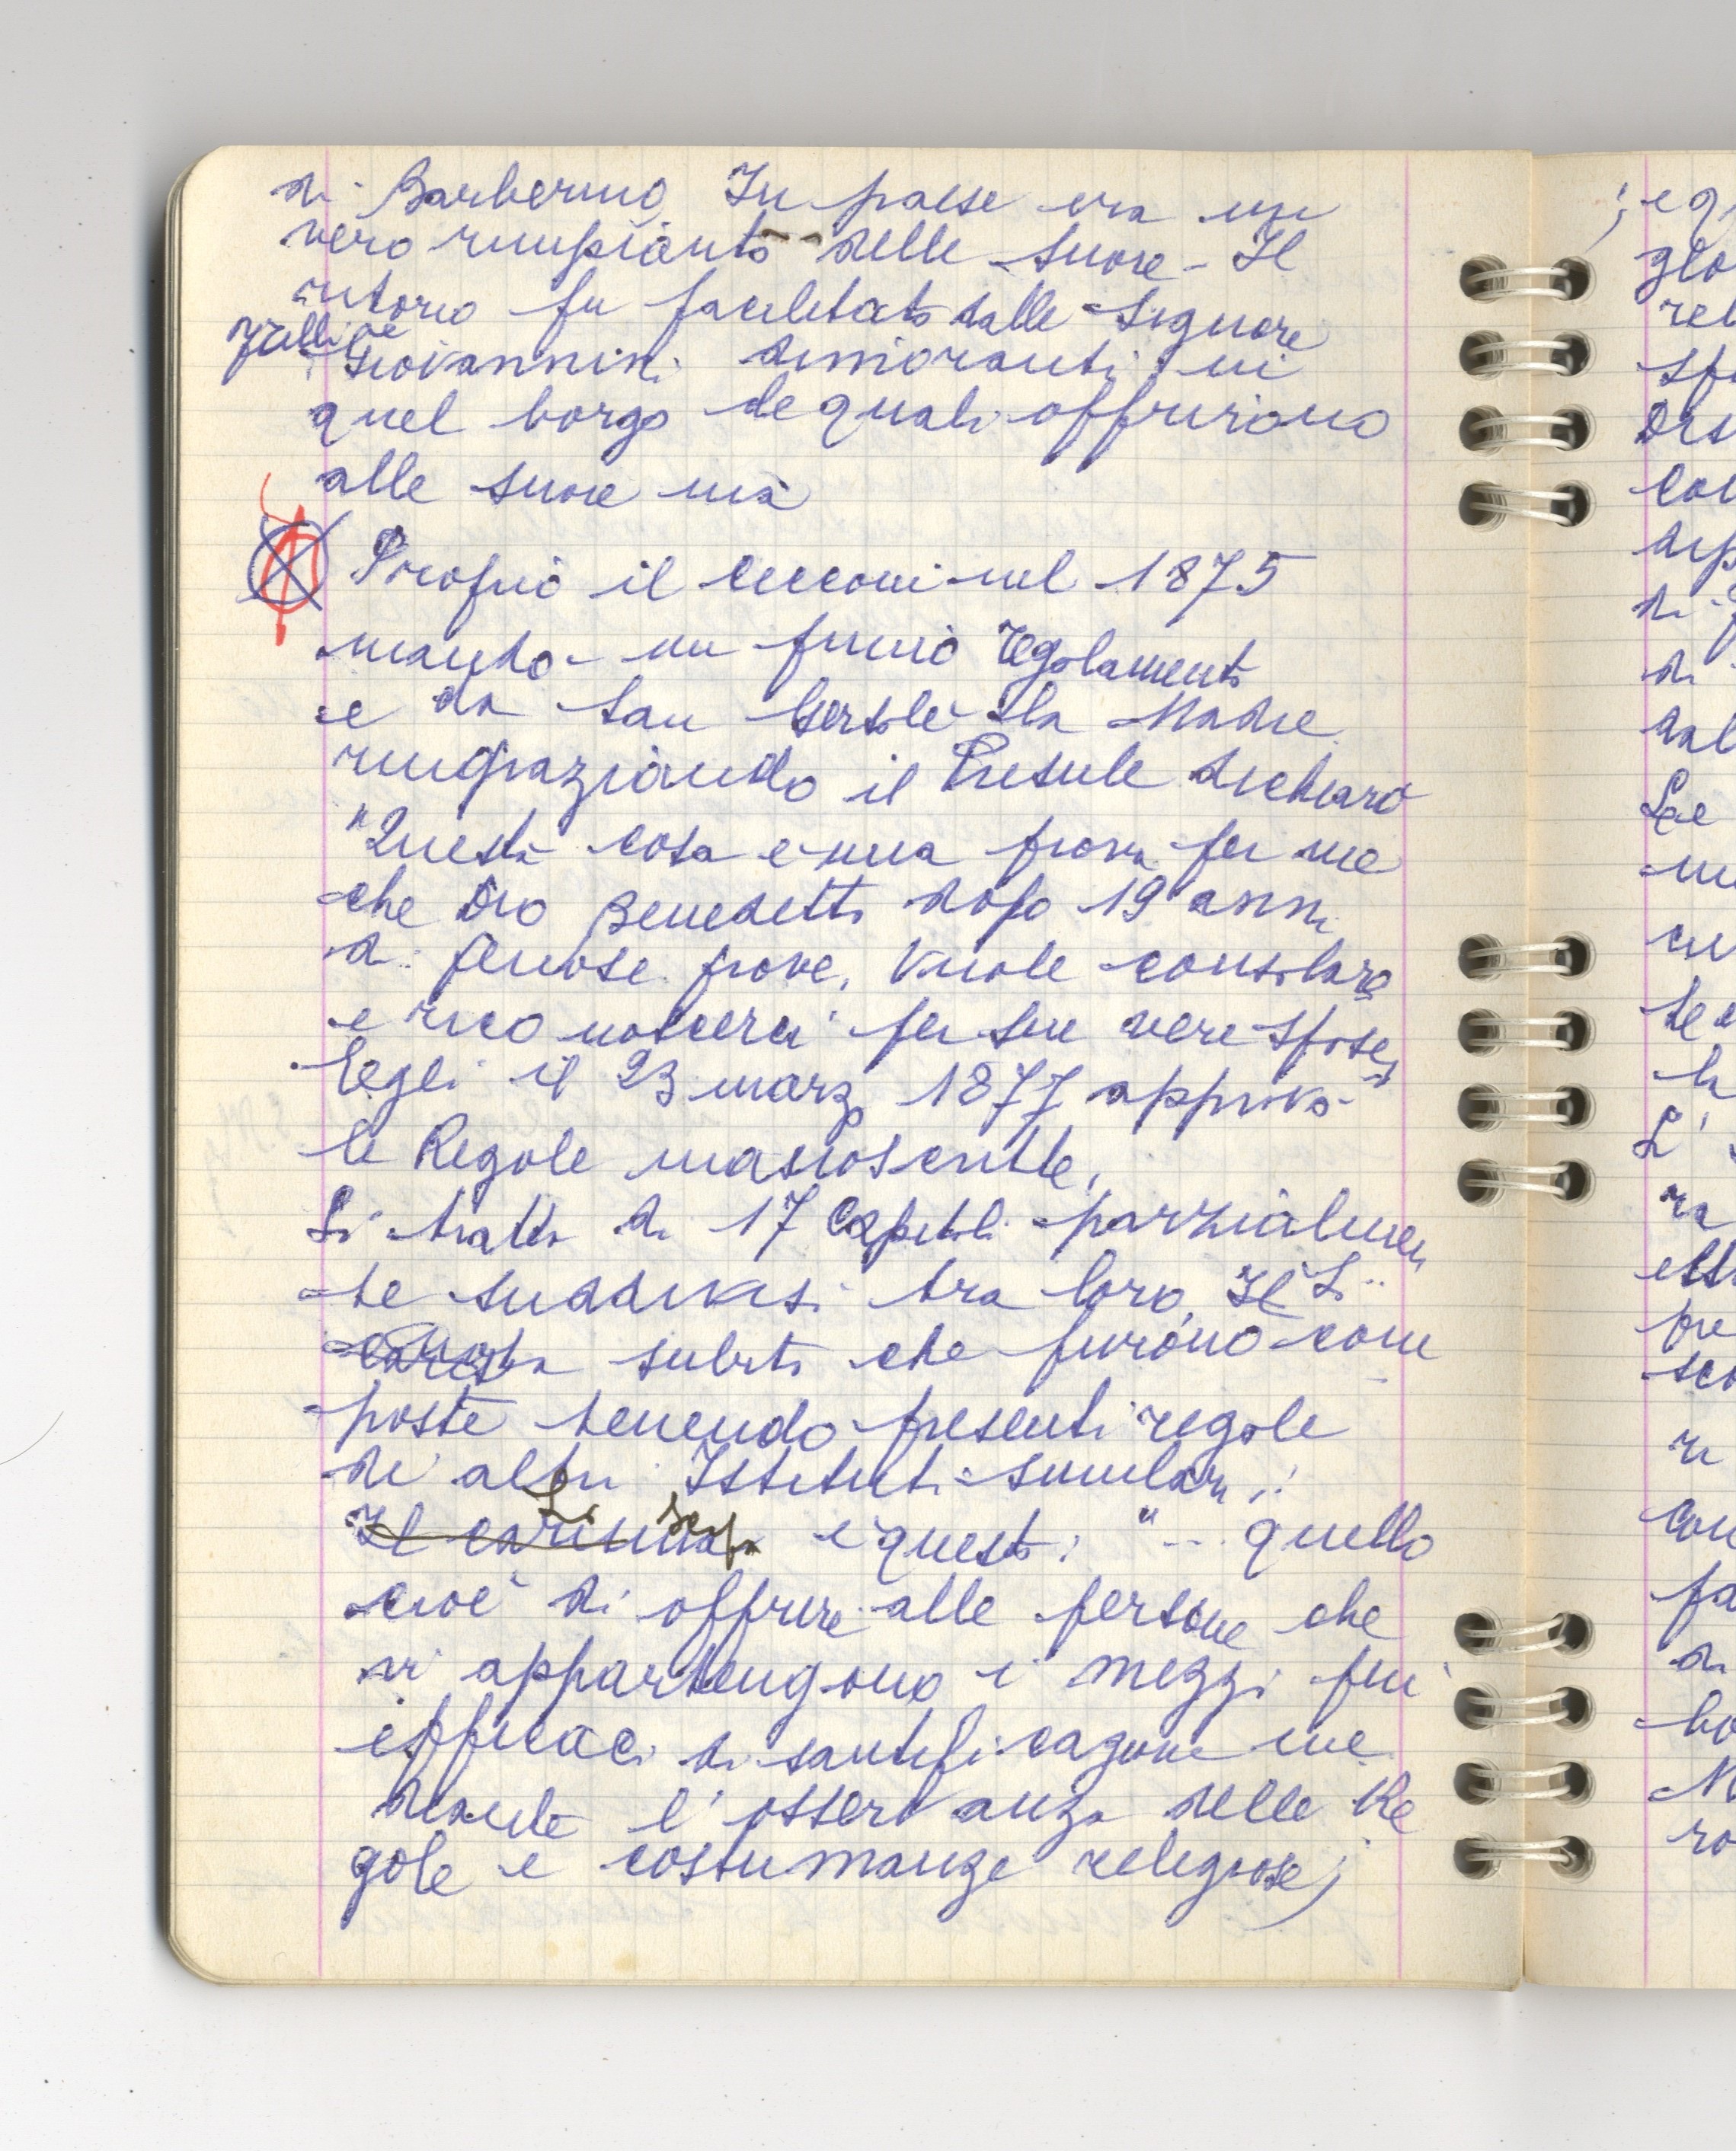 di Barberino In paese era un
vero rimpianto delle suore - Il
ritorno fu facilitato dalle Signore
Giovannini dimoranti in
quel borgo le quali offrirono
alle suore una
Proprio il Cecconi nel 1875
mandò un primo regolamento
e da San Gersolè la Madre
ringraziando il Presule dichiarò
"Questa cosa è una prova per me
che Dio Benedetto dopo 19 anni
di penose prove, vuole consolare
e riconoscerci per sue vere spose"
Egli il 23 marzo 1877 approvò
le Regole manoscritte.
Si tratta di 17 Capitoli parzialmen
te suddivisi tra loro. Il Si
subito che furono com
poste tenendo presenti regole
di altri Istituti similari:
Il carisma Lo scopo è questo: "... quello
cioè di offrire alle persone che
vi appartengono i mezzi più
efficaci di santificazione me
diante l'osservanza delle Re
gole e costumanze religiose;
; e q
glo
rel
sfe
Dis
con
di
di
dal
Le
te
h
L'
ra
ett
pre
sco
ri
con
fa
di
ho
M
ro